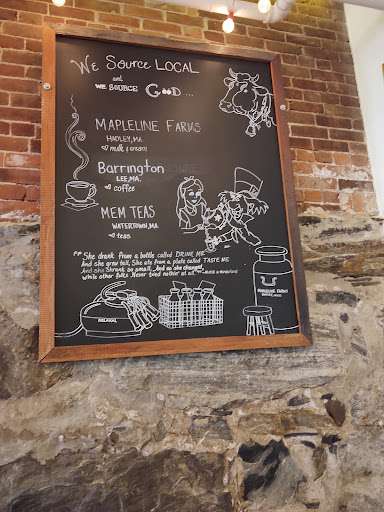 We Source LOCAL
and
WE SOURCE GOOD...
MAPLELINE FARMS
HADLEY, MA.
milk & cream
Barrington
LEE, MA.
coffee
MEM TEAS
WATERTOWN, MA
teas
"She drank from a bottle called DRINK ME
And she grew tall, She ate from a plate called TASTE ME
And she Shrank so small. And so she changed,
while other folks Never tried nothin' at all."
DELAVAL
MAPLELINE FARMS
HADLEY, MA